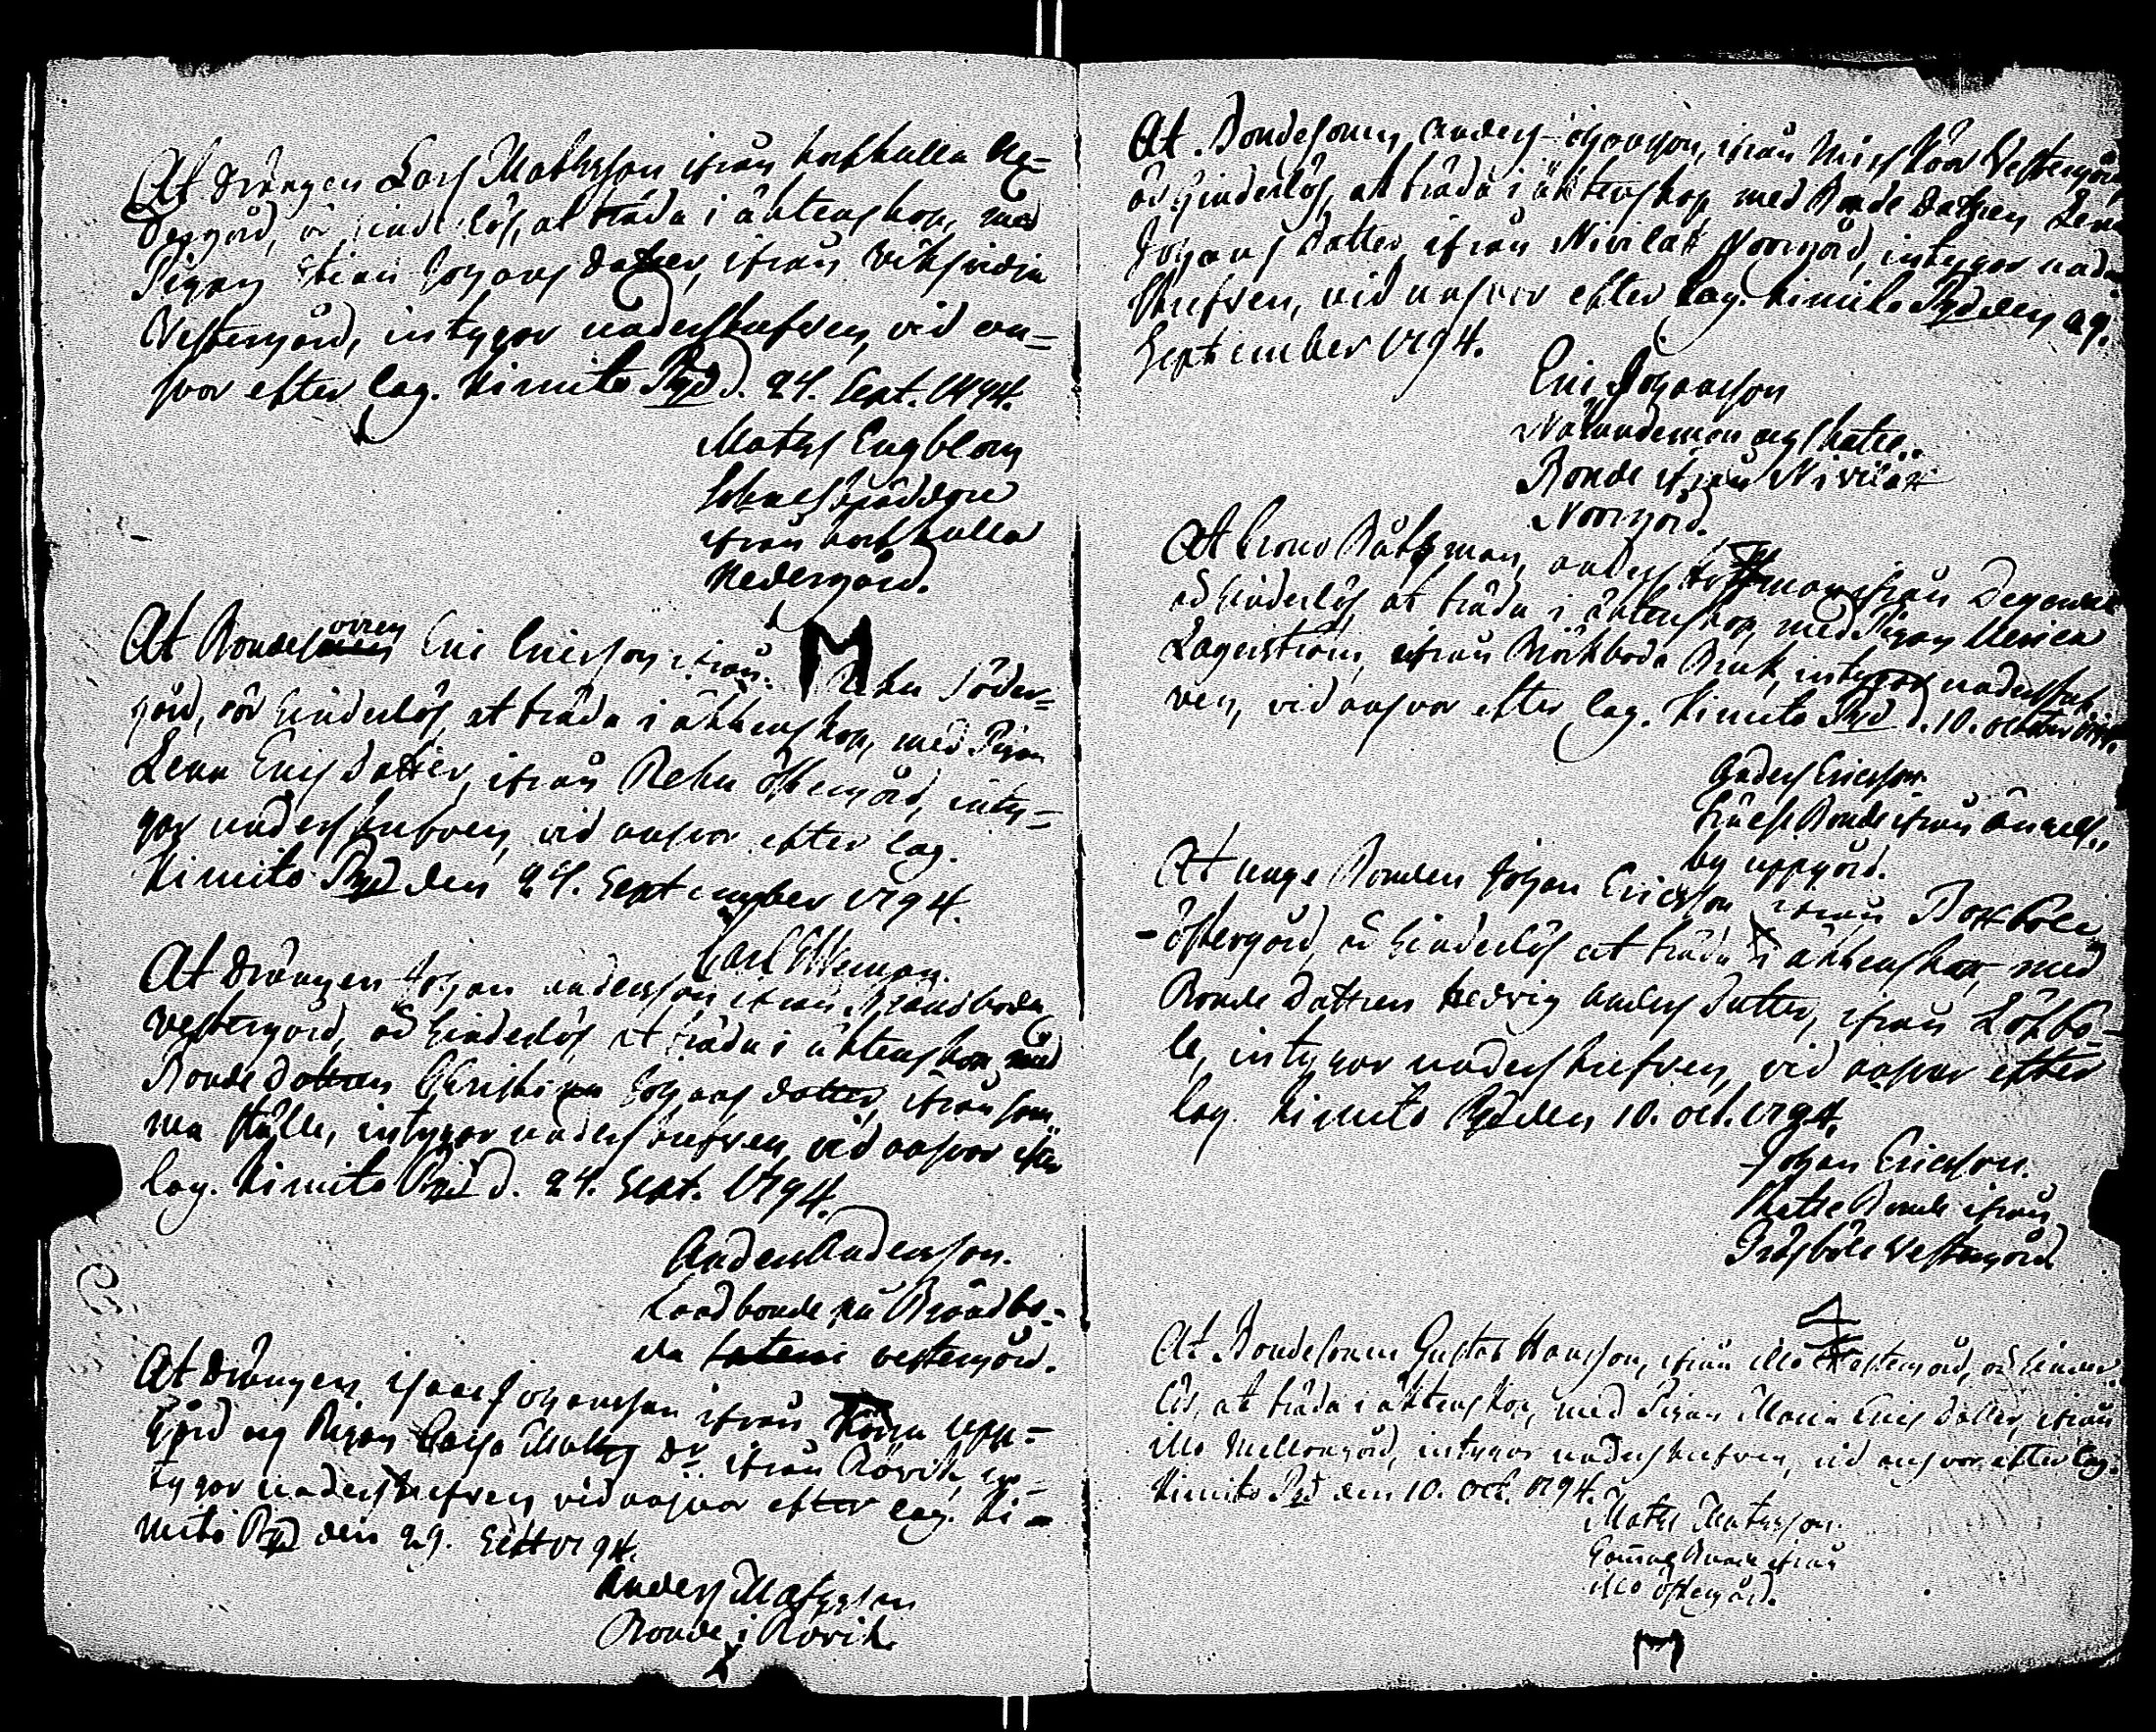 At drängen Lars Mathsson ifrån Kockkulla Ne-
dergård, är hinderlös, at träda i äktenskap, med
Pigan Stina Johans dotter, ifrån Viksvidja
Vestergård, intygar underskrefven, vid an-
svar efter lag. Kimito Pgd d. 24. Sept. 1794.
Mathes Engblom
ifrån Kockkulla
Nedergård.
At Bondesonen Eric Ericsson ifrån Reku Söder-
gård, är hinderlös, at träda i äktenskap, med Pigan
Lena Erics dotter, ifrån Reku Östergård, inty-
gar underskrefven, vid ansvar efter lag.
Kimito Pgd den 24. September 1794.
Carl
At drängen Johan Andersson ifrån Brändboda
Vestergård, är hinderlös, at träda i äktenskap med
Bonde dottren Christina Johans dotter, ifrån sam-
ma ställe, intygar underskrefven, vid ansvar efter
lag. Kimito Pgd d. 24. Sept. 1794.
Anders Andersson.
Landbonde på Brändbo-
da vestergård.
At drängen Isaac Johansson ifrån Upp-
gård og Pigan Caisa Maths dr. ifrån Rövik, in-
tygar underskrefven vid ansvar efter lag. Ki-
mito Pgd den 29. Sept 1794.
Anders Mathsson
Bonde i Rövik
At Bondesonen Anders Johansson, ifrån Misskärr Vestergård,
är hinderlös, at träda i äktenskap med Bonde dottren Lena
Johans dotter ifrån Nivelax Norrgård, intygar under-
skrefven, vid ansvar efter lag. Kimito Pgd den 29.
September 1794.
Eric Johansson
Nämndeman og skatte
Bonde ifrån Nivelax
Norrgård.
At Crono Båtsman, Anders ifrån
är hinderlös at träda i äktenskap, med Pigan Ulrica
Lagerström, ifrån Björkboda Bruk, intygar underskref-
ven, vid ansvar efter lag. Kimito Pgd d. 10. october 1794.
Anders Ericsson
Frälse Bonde ifrån
by uppgård.
At unge Bonden Johan Ericsson ifrån Boxböle
Östergård, är hinderlös at träda i äktenskap, med
Bonde dottren Hedvig Anders dotter, ifrån Löfbö-
le, intygar underskrefven, vid ansvar efter
lag. Kimito Pgd den 10. oct. 1794.
Johan Ericsson.
Skatte Bonde ifrån
Vestergård
At Bondesonen Gustaf Hansson, ifrån Mo Östergård, är hinder-
lös, at träda i äktenskap, med Pigan Maria Erics dotter, ifrån
Mo Mellangård, intygar underskrefven, vid ansvar efter lag.
Kimito Pgd den 10. Oct. 1794.
Maths Mathsson.
Gammal Bonde ifrån
Mo Östergård.